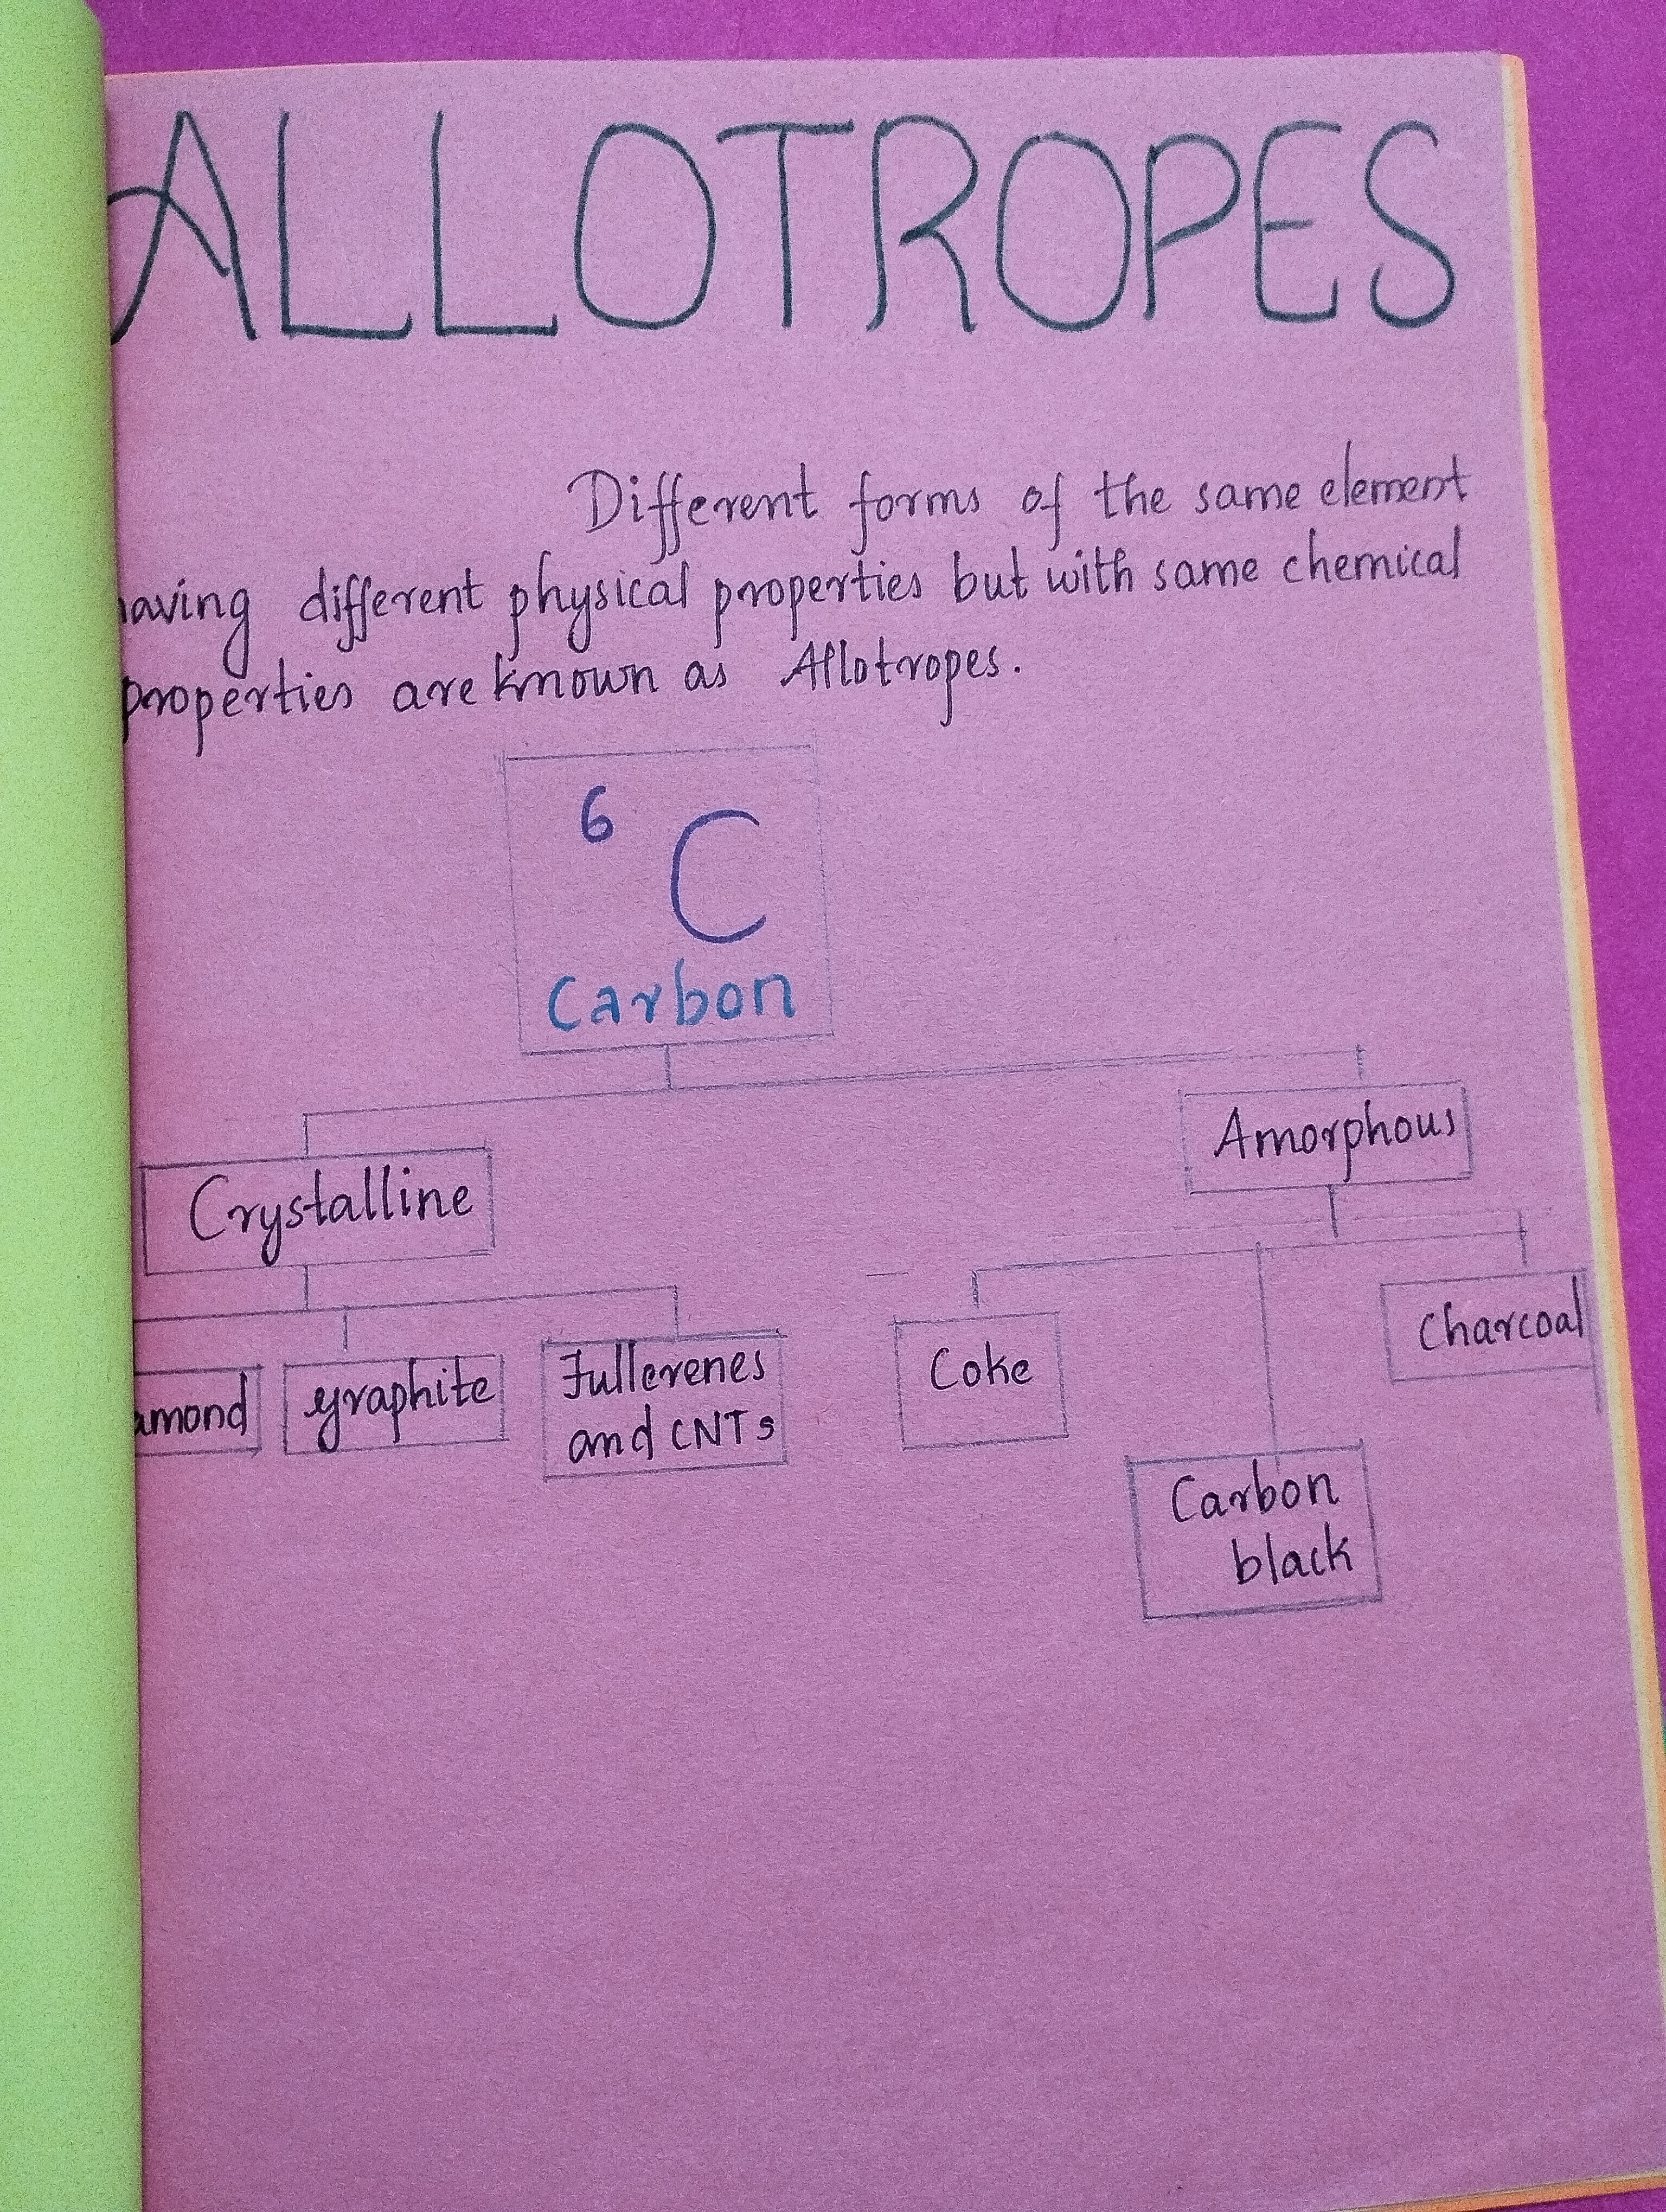 ALLOTROPES
Different forms of the same element
having different physical properties but with same chemical
properties are known as Allotropes.
6
C
Carbon
Amorphous
Crystalline
amond
graphite
Fullerenes
and CNTs
Coke
Charcoal
Carbon
black